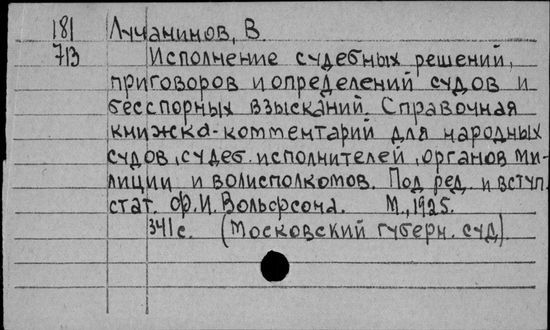 181 Лучанинов, В.
713 Исполнение судебных решений,
приговоров и определений судов и
бесспорных взысканий. Справочная
книжка-комментарий для народных
судов, судеб. исполнителей, органов ми-
лиции и волисполкомов. Под ред. и вступ.
стат. Ф.И. Вольфсона. М., 1925.
341с. (Московский губерн. суд).